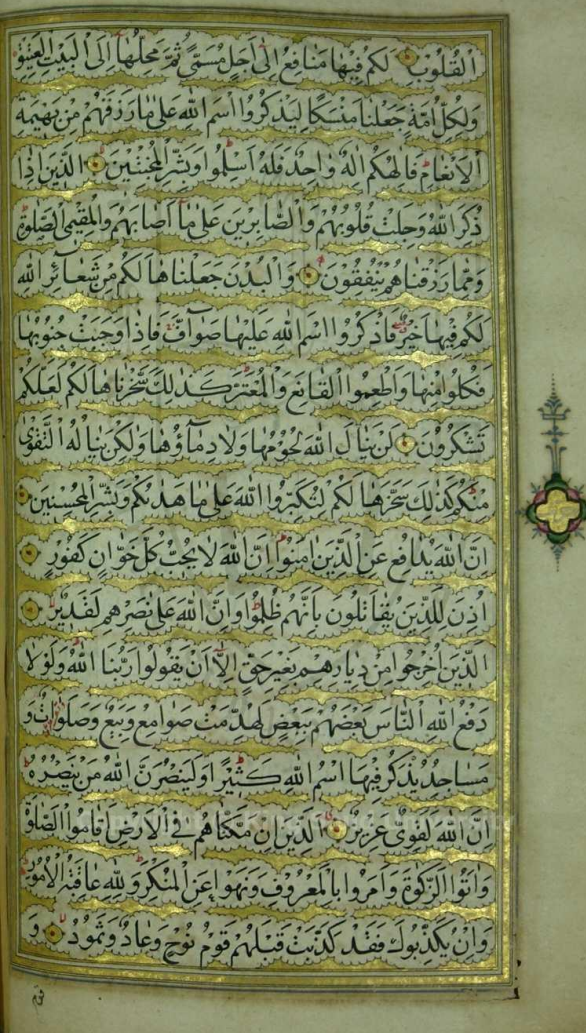 الْقُلُوبِ لَكُمْ فِيهَا مَنَافِعُ اِلٰى اَجَلٍ مُسَمًّى ثُمَّ مَحِلُّهَا اِلَى الْبَيْتِ الْعَتِيقِ
وَلِكُلِّ اُمَّةٍ جَعَلْنَا مَنْسَكًا لِيَذْكُرُوا اسْمَ اللهِ عَلٰى مَا رَزَقَهُمْ مِنْ بَهِيمَةِ
الْاَنْعَامِ فَاِلٰهُكُمْ اِلٰهٌ وَاحِدٌ فَلَهُ اَسْلِمُوا وَبَشِّرِ الْمُخْبِتِينَ اَلَّذِينَ اِذَا
ذُكِرَ اللهُ وَجِلَتْ قُلُوبُهُمْ وَالصَّابِرِينَ عَلٰى مَا اَصَابَهُمْ وَالْمُقِيمِي الصَّلٰوةِ
وَمِمَّا رَزَقْنَاهُمْ يُنْفِقُونَ وَالْبُدْنَ جَعَلْنَاهَا لَكُمْ مِنْ شَعَائِرِ اللهِ
لَكُمْ فِيهَا خَيْرٌ فَاذْكُرُوا اسْمَ اللهِ عَلَيْهَا صَوَافَّ فَاِذَا وَجَبَتْ جُنُوبُهَا
فَكُلُوا مِنْهَا وَاَطْعِمُوا الْقَانِعَ وَالْمُعْتَرَّ كَذٰلِكَ سَخَّرْنَاهَا لَكُمْ لَعَلَّكُمْ
تَشْكُرُونَ لَنْ يَنَالَ اللهَ لُحُومُهَا وَلَا دِمَاؤُهَا وَلٰكِنْ يَنَالُهُ التَّقْوٰى
مِنْكُمْ كَذٰلِكَ سَخَّرَهَا لَكُمْ لِتُكَبِّرُوا اللهَ عَلٰى مَا هَدٰىكُمْ وَبَشِّرِ الْمُحْسِنِينَ
اِنَّ اللهَ يُدَافِعُ عَنِ الَّذِينَ اٰمَنُوا اِنَّ اللهَ لَا يُحِبُّ كُلَّ خَوَّانٍ كَفُورٍ
اُذِنَ لِلَّذِينَ يُقَاتَلُونَ بِاَنَّهُمْ ظُلِمُوا وَاِنَّ اللهَ عَلٰى نَصْرِهِمْ لَقَدِيرٌ
اَلَّذِينَ اُخْرِجُوا مِنْ دِيَارِهِمْ بِغَيْرِ حَقٍّ اِلَّا اَنْ يَقُولُوا رَبُّنَا اللهُ وَلَوْلَا
دَفْعُ اللهِ النَّاسَ بَعْضَهُمْ بِبَعْضٍ لَهُدِّمَتْ صَوَامِعُ وَبِيَعٌ وَصَلَوَاتٌ وَ
مَسَاجِدُ يُذْكَرُ فِيهَا اسْمُ اللهِ كَثِيرًا وَلَيَنْصُرَنَّ اللهُ مَنْ يَنْصُرُهُ
اِنَّ اللهَ لَقَوِيٌّ عَزِيزٌ اَلَّذِينَ اِنْ مَكَّنَّاهُمْ فِي الْاَرْضِ اَقَامُوا الصَّلٰوةَ
وَاٰتَوُا الزَّكٰوةَ وَاَمَرُوا بِالْمَعْرُوفِ وَنَهَوْا عَنِ الْمُنْكَرِ وَلِلّٰهِ عَاقِبَةُ الْاُمُورِ
وَاِنْ يُكَذِّبُوكَ فَقَدْ كَذَّبَتْ قَبْلَهُمْ قَوْمُ نُوحٍ وَعَادٌ وَثَمُودُ وَ
قوم